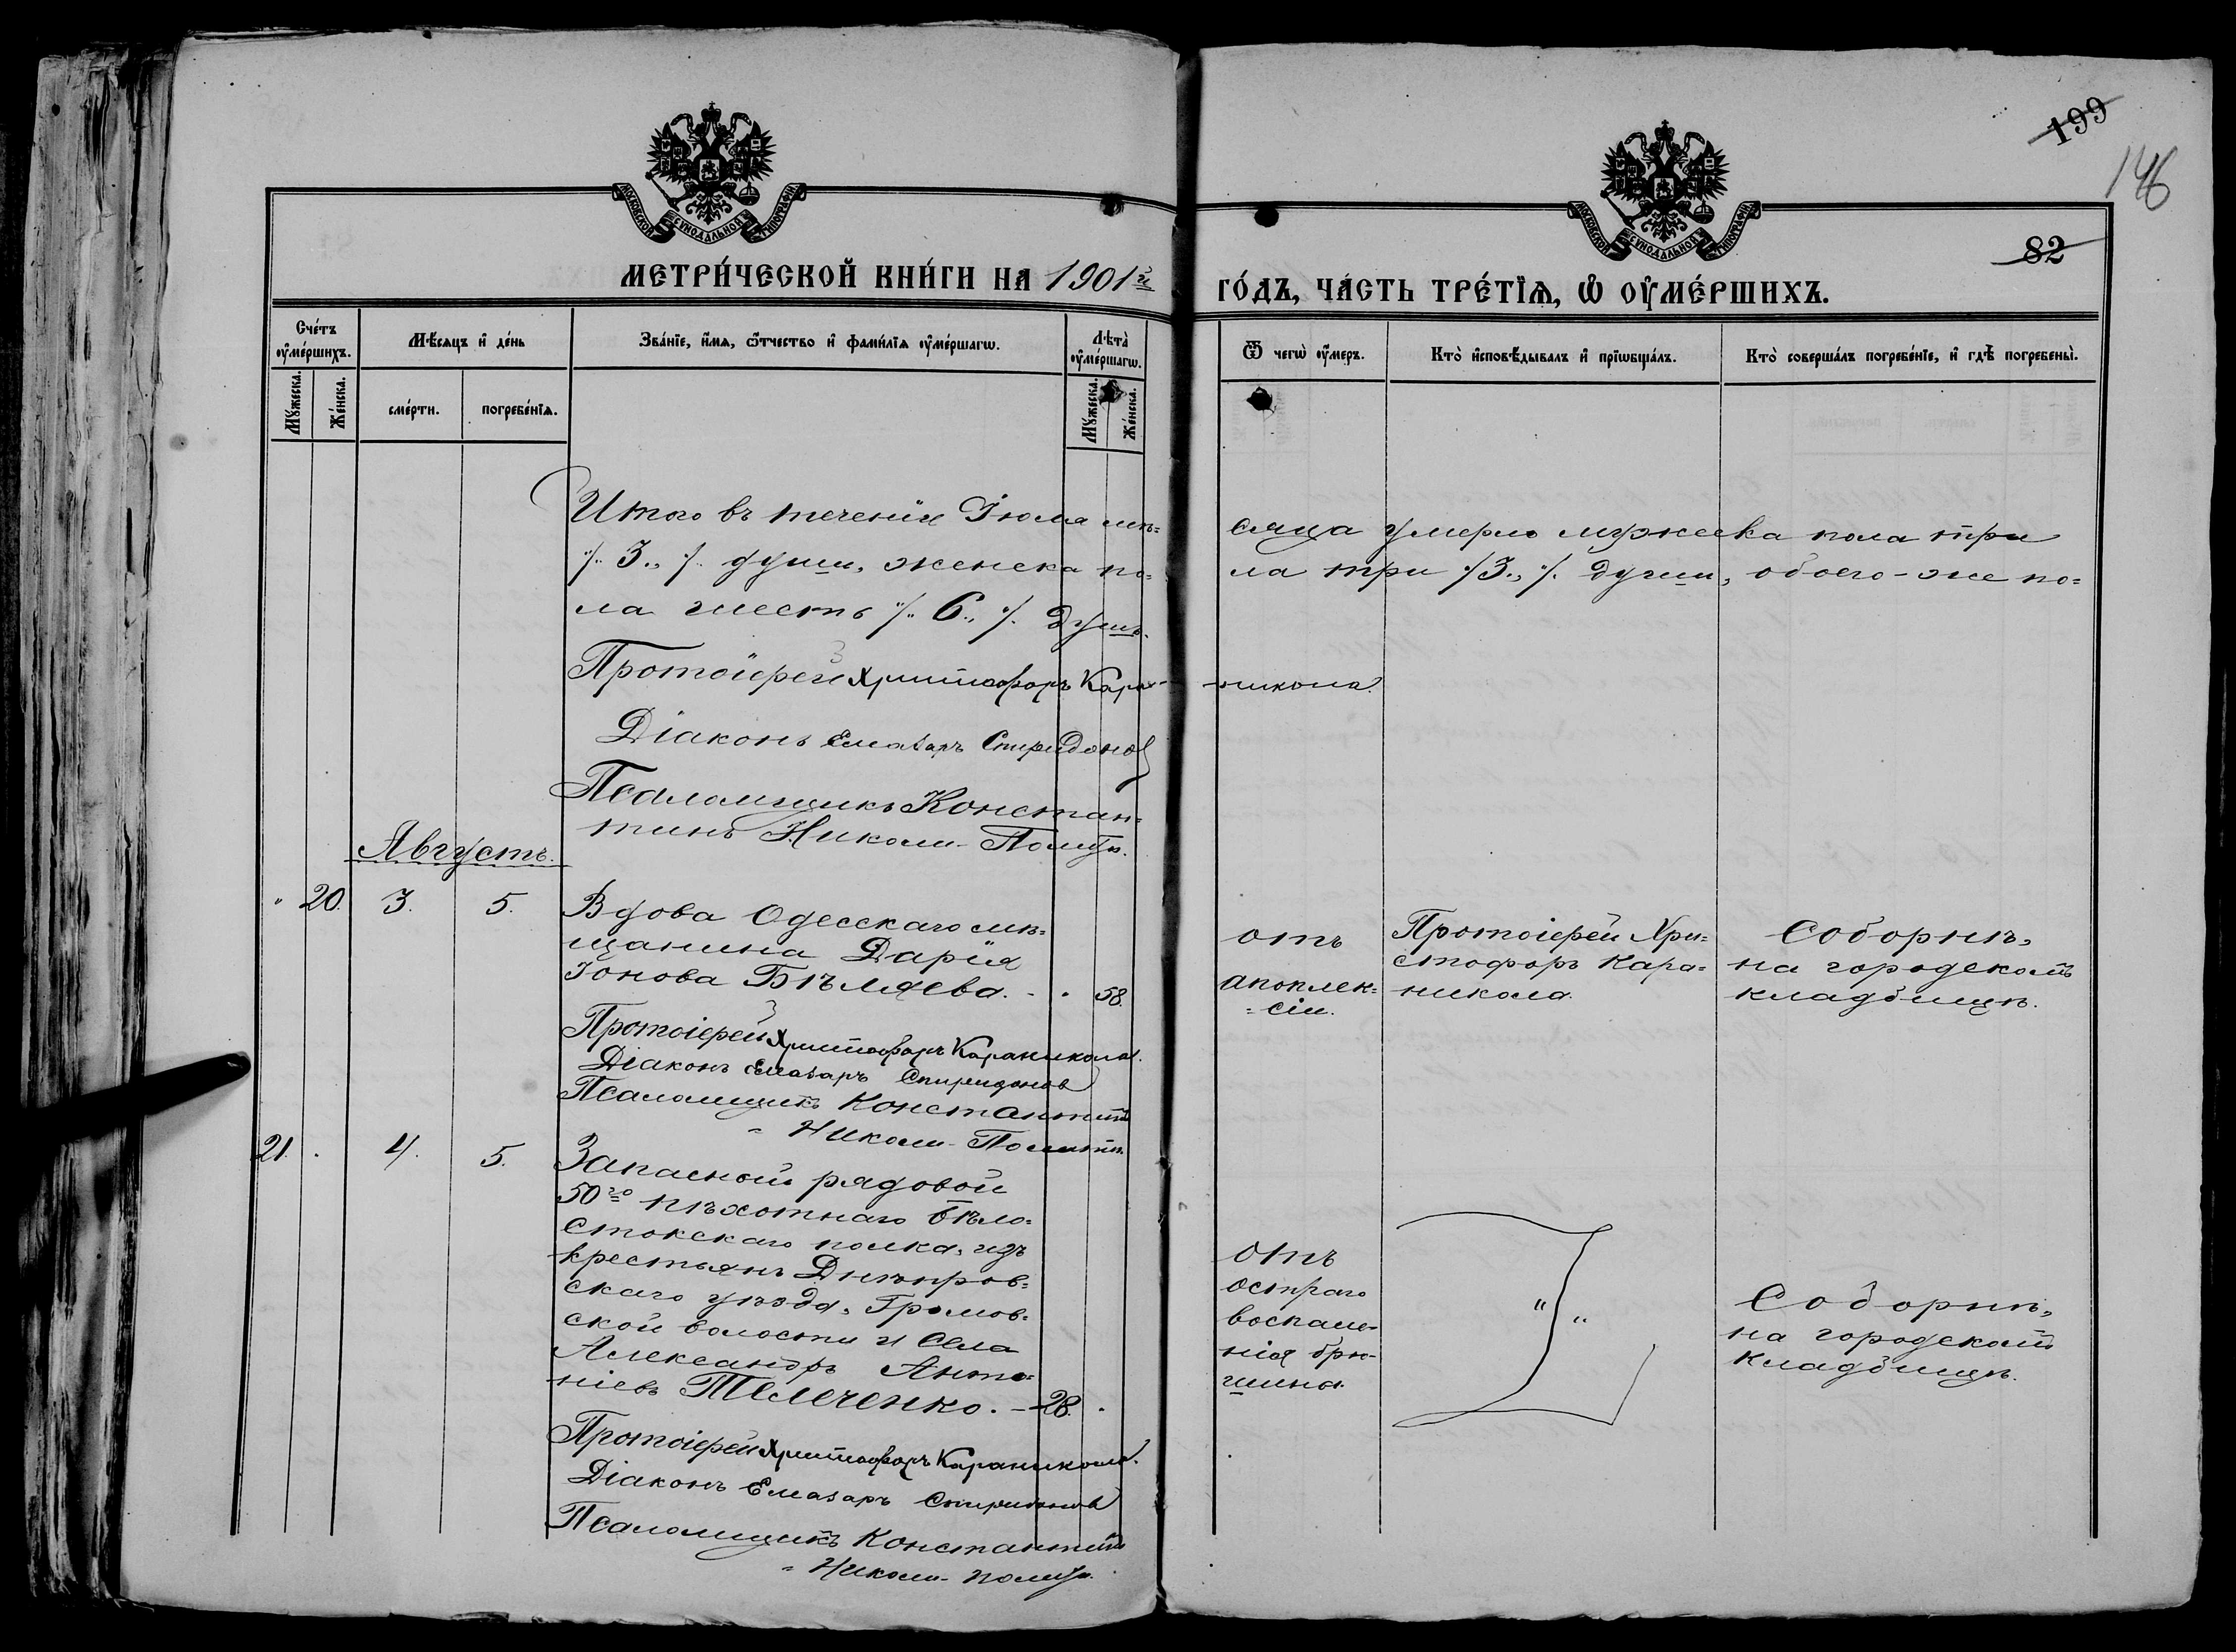 199
146
82
МОСКОВСКОЙ СѴНОДАЛЬНОЙ ТИПОГРАФІИ
МОСКОВСКОЙ СѴНОДАЛЬНОЙ ТИПОГРАФІИ
МЕТРИ́ЧЕСКОЙ КНИ́ГИ НА 1901й
ГО́ДЪ, ЧА́СТЬ ТРЕ́ТЇѦ, Ѽ ОУ҆МЕ́РШИХЪ.
Сче́тъ оу҆ме́ршихъ.
Мꙋ́жеска.
Же́нска.
Мѣ́сѧцъ и҆ де́нь
сме́рти.
погребе́нїѧ.
Зва́нїе, и҆́мѧ, ѻ҆́тчество и҆ фами́лїѧ оу҆ме́ршагѡ.
Лѣта̀ оу҆ме́ршагѡ.
Мꙋ́жеска.
Же́нска.
Ѿ чегѡ̀ оу҆́меръ.
Кто̀ и҆сповѣ́дывалъ и҆ прїѡбща́лъ.
Кто̀ соверша́лъ погребе́нїе, и҆ гдѣ̀ погребены̀.
Итого въ теченіи Іюля мѣ=
сяца умерло мужеска пола три
/. 3., /. души, женска по=
ла три /. 3., /. души, обоего-же по=
ла шесть /. 6., /. душъ.
Протоіерей Христофоръ Кара-
-никола.
Діаконъ Елеазаръ Спиридонов
Псаломщикъ Констан=
тинъ Николи-Полити.
Августъ.
" 20. 3. 5.
Вдова Одесскаго мѣ=
щанина Дарія
Іонова Бѣляева. - " 58.
отъ
апоплек=
=сіи.
Протоіерей Хри=
стофоръ Кара=
никола.
Соборнѣ,
на городскомъ
кладбищѣ.
Протоіерей Христофоръ Караникола.
Діаконъ Елеазаръ Спиридонов
Псаломщикъ Константинъ
- Николи-Полити.
21. . 4. 5.
Запасный рядовой
50го пѣхотнаго Бѣло=
стокскаго полка, изъ
крестьянъ Днѣпров=
скаго уѣзда, Громов=
ской волости и села
Александръ Анто=
ніевъ Телеченко. - 28. .
отъ
остраго
воспале-
нія брю-
шины.
" "
Соборнѣ,
на городскомъ
кладбищѣ.
Протоіерей Христофоръ Караникола.
Діаконъ Елеазаръ Спиридонов
Псаломщикъ Константинъ
- Николи-Полити.